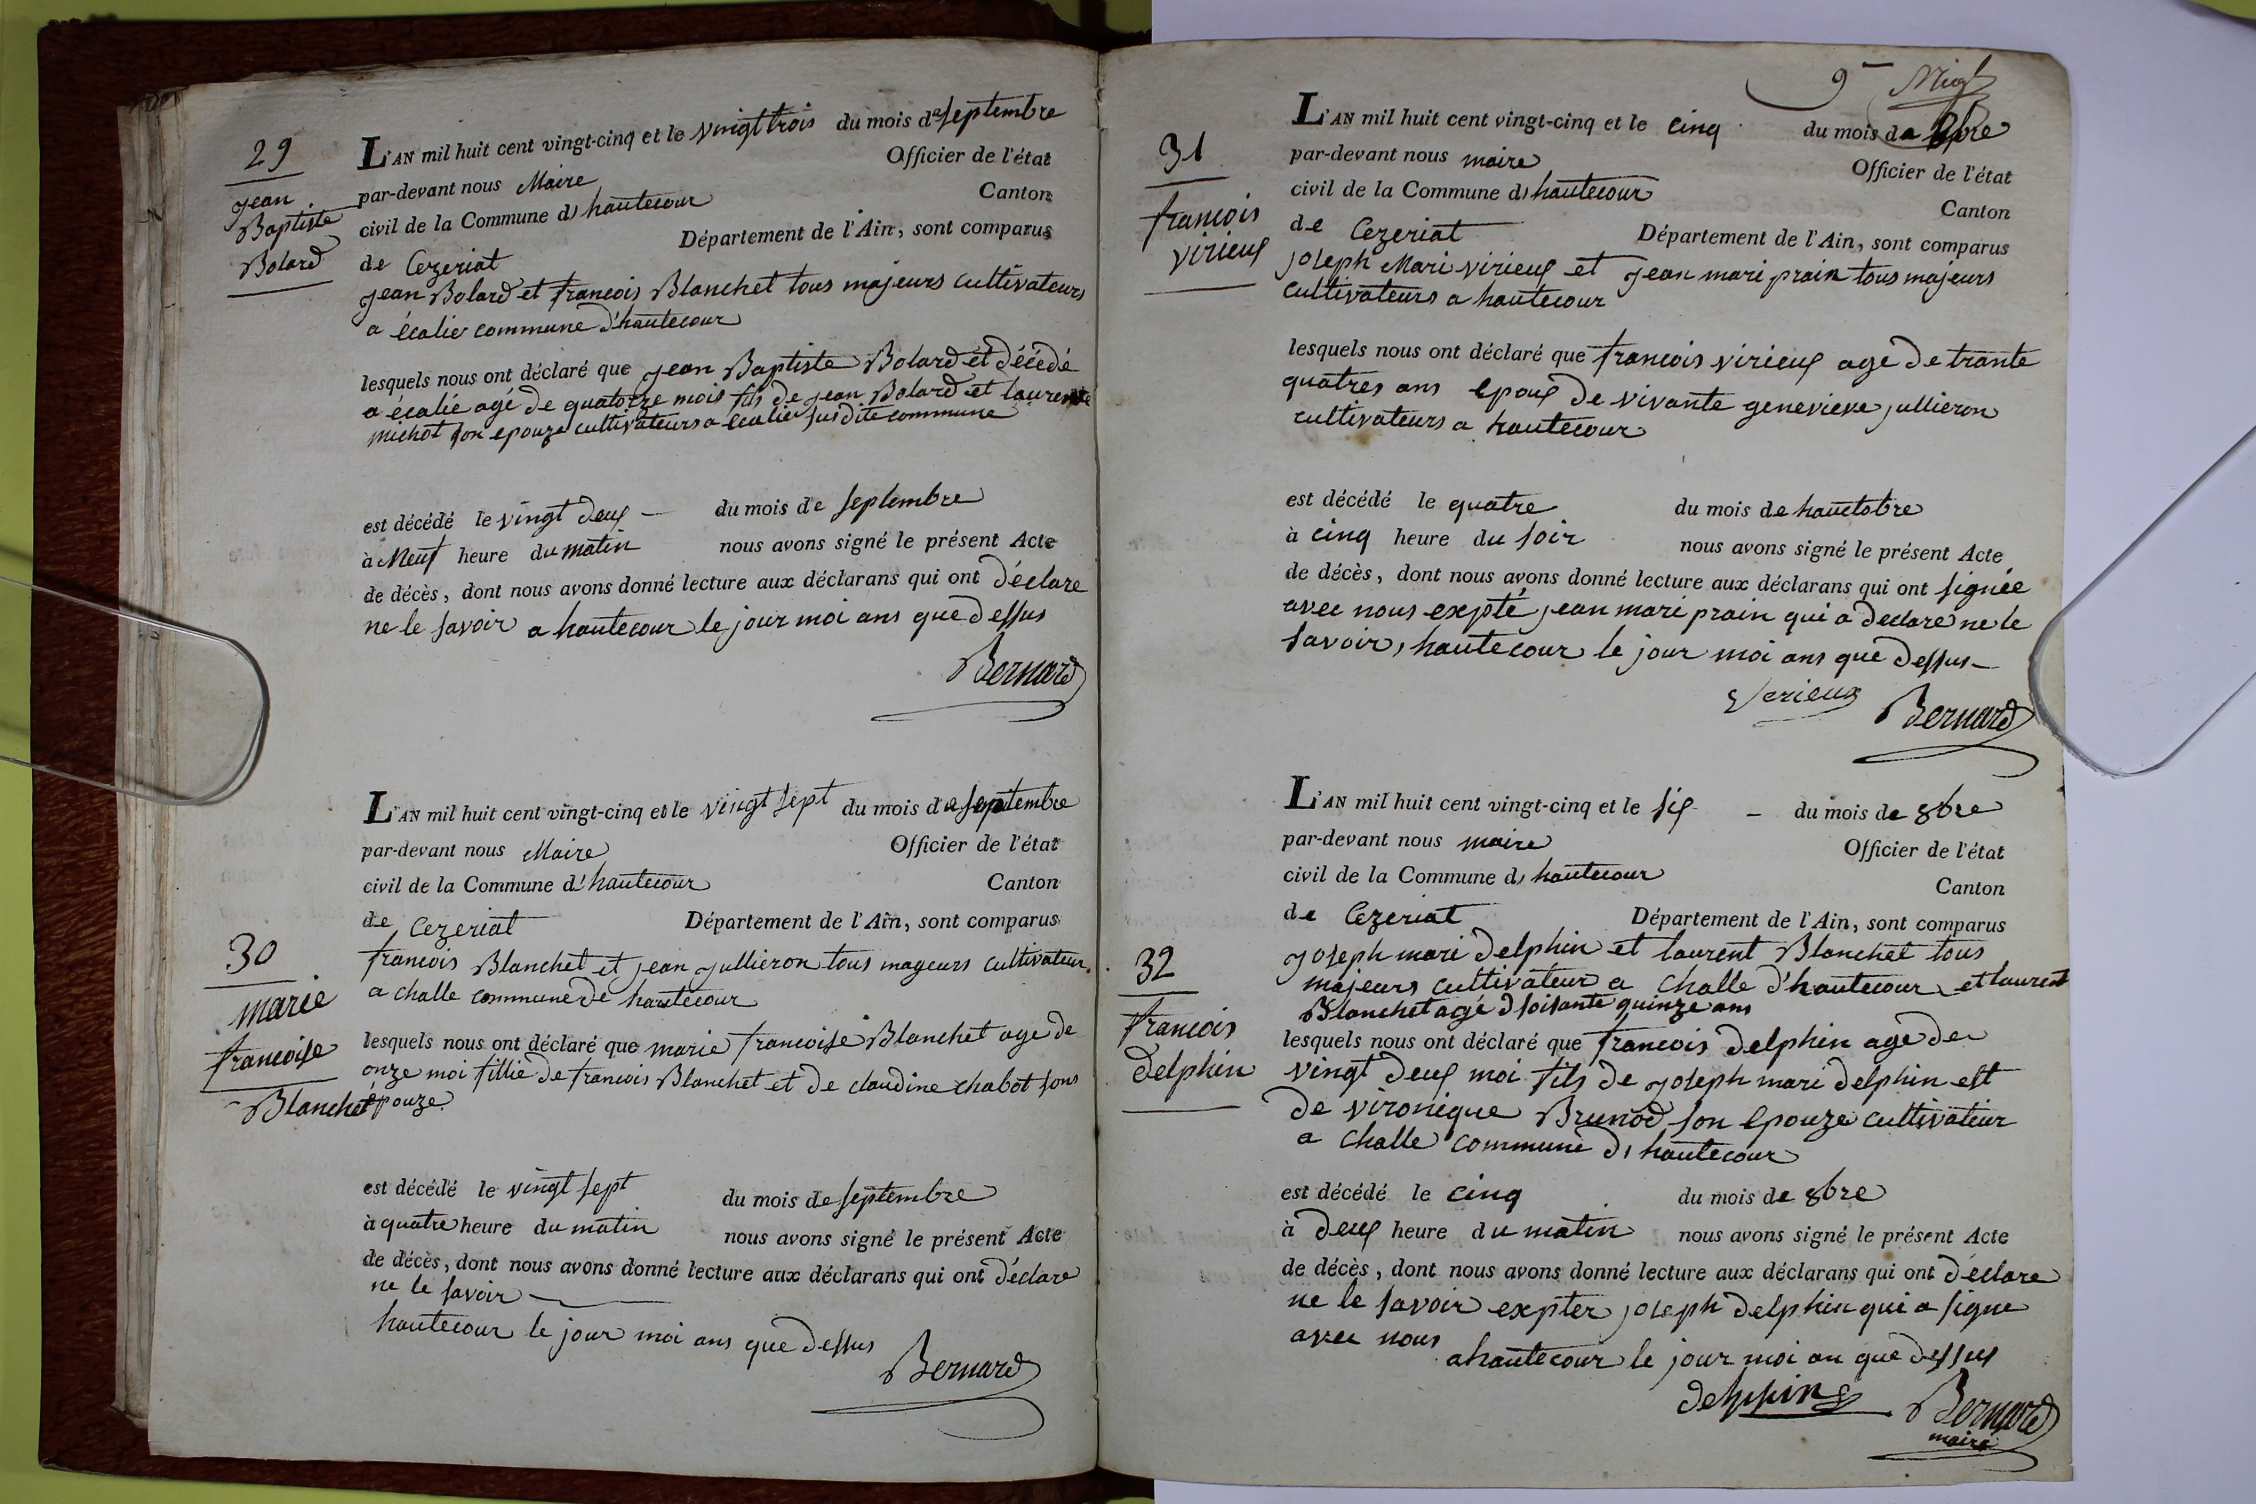 29
jean
Baptiste
Bolard
L'AN mil huit cent vingt-cinq et le vingt trois du mois de septembre
par-devant nous Maire Officier de l'état
civil de la Commune d, hautecour Canton
de Cezeriat Département de l'Ain, sont comparus
jean Bolard et francois Blanchet tous majeurs cultivateurs
a écalie commune d'hautecour
lesquels nous ont déclaré que jean Baptiste Bolard et décédé
a écalié agé de quatorze mois fils de jean Bolard et laurente
michot son epouze cultivateurs a ecalie susdite commune
est décédé le vingt deux - du mois de septembre
à Neuf heure du matin nous avons signé le présent Acte
de décès, dont nous avons donné lecture aux déclarans qui ont déclare
ne le savoir a hautecour le jour moi ans que dessus
Bernard
30
marie
francoise
Blanchet
L'AN mil huit cent vingt-cinq et le vingt sept du mois de septembre
par-devant nous Maire Officier de l'état
civil de la Commune d'hautecour Canton
de Cezeriat Département de l'Ain, sont comparus
francois Blanchet et jean jullieron tous mageurs cultivateur
a challe commune de hautecour
lesquels nous ont déclaré que marie francoise Blanchet age de
onze moi fillie de francois Blanchet et de claudine chabot sons
épouze
est décédé le vingt sept du mois de septembre
à quatre heure du matin nous avons signé le présent Acte
de décès, dont nous avons donné lecture aux déclarans qui ont déclare
ne le savoir
hautecour le jour moi ans que dessus
Bernard
9
31
francois
virieux
L'AN mil huit cent vingt-cinq et le cinq du mois de 8bre
par-devant nous maire Officier de l'état
civil de la Commune d, hautecour Canton
de Cezeriat Département de l'Ain, sont comparus
joseph Mari virieux et jean mari prain tous majeurs
cultivateurs a hautecour
lesquels nous ont déclaré que francois virieux age de trante
quatres ans epoux de vivante genevieve jullieron
cultivateurs a hautecour
est décédé le quatre du mois de hauctobre
à cinq heure du soir nous avons signé le présent Acte
de décès, dont nous avons donné lecture aux déclarans qui ont signée
avec nous expté jean mari prain qui a declare ne le
savoir, hautecour le jour moi ans que dessus
Verieux Bernard
32
francois
delphin
L'AN mil huit cent vingt-cinq et le six - du mois de 8bre
par-devant nous maire Officier de l'état
civil de la Commune d, hautecour Canton
de Cezeriat Département de l'Ain, sont comparus
joseph mari delphin et laurent Blanchet tous
majeurs cultivateur a challe d'hautecour et laurent
Blanchet agé d soisante quinze ans
lesquels nous ont déclaré que francois delphin age de
vingt deux moi fils de joseph mari delphin est
de vironique Brunod son epouze cultivateur
a challe commune d, hautecour
est décédé le cinq du mois de 8bre
à deux heure du matin nous avons signé le présent Acte
de décès, dont nous avons donné lecture aux déclarans qui ont déclare
ne le savoir expter joseph delphin qui a signe
avec nous
a hautecour le jour moi an que dessus
delphin Bernard
maire